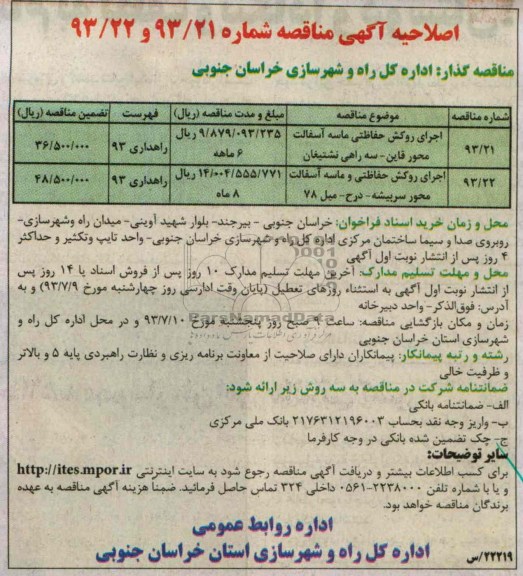 اصلاحیه آگهی مناقصه شماره ۹۳/۲۱ و ۹۳/۲۲
مناقصه گذار: اداره کل راه و شهرسازی خراسان جنوبی
شماره مناقصه موضوع مناقصه مبلغ و مدت مناقصه (ریال) فهرست تضمین مناقصه (ریال)
۹۳/۲۱ اجرای روکش حفاظتی ماسه آسفالت محور قاین - سه راهی نشتیغان ۹/۸۷۹/۰۹۳/۲۳۵ ریال ۶ ماهه راهداری ۹۳ ۳۶/۵۰۰/۰۰۰
۹۳/۲۲ اجرای روکش حفاظتی و ماسه آسفالت محور سربیشه- درح- میل ۷۸ ۱۴/۰۰۴/۵۵۵/۷۷۱ ریال ۸ ماه راهداری ۹۳ ۴۸/۵۰۰/۰۰۰
محل و زمان خرید اسناد فراخوان: خراسان جنوبی - بیرجند- بلوار شهید آوینی- میدان راه وشهرسازی-
روبروی صدا و سیما ساختمان مرکزی اداره کل راه و شهرسازی خراسان جنوبی- واحد تایپ وتکثیر و حداکثر
۴ روز پس از انتشار نوبت اول آگهی
محل و مهلت تسلیم مدارک: آخرین مهلت تسلیم مدارک ۱۰ روز پس از فروش اسناد یا ۱۴ روز پس
از انتشار نوبت اول آگهی به استثناء روزهای تعطیل (پایان وقت ادارسی روز چهارشنبه مورخ ۹۳/۷/۹) و به
آدرس: فوق‌الذکر- واحد دبیرخانه
زمان و مکان بازگشایی مناقصه: ساعت ۹ صبح روز پنجشنبه مورخ ۹۳/۷/۱۰ و در محل اداره کل راه و
شهرسازی استان خراسان جنوبی
رشته و رتبه پیمانکار: پیمانکاران دارای صلاحیت از معاونت برنامه ریزی و نظارت راهبردی پایه ۵ و بالاتر
و ظرفیت خالی
ضمانتنامه شرکت در مناقصه به سه روش زیر ارائه شود:
الف- ضمانتنامه بانکی
ب- واریز وجه نقد بحساب ۲۱۷۶۳۱۲۱۹۶۰۰۳ بانک ملی مرکزی
ج- چک تضمین شده بانکی در وجه کارفرما
سایر توضیحات:
برای کسب اطلاعات بیشتر و دریافت آگهی مناقصه رجوع شود به سایت اینترنتی http://ites.mpor.ir
و یا با شماره تلفن ۲۲۳۸۰۰۰-۰۵۶۱ داخلی ۳۲۴ تماس حاصل فرمائید. ضمناً هزینه آگهی مناقصه به عهده
برندگان مناقصه خواهد بود.
اداره روابط عمومی
اداره کل راه و شهرسازی استان خراسان جنوبی
۲۲۲۱۹/س
ParsNamadData